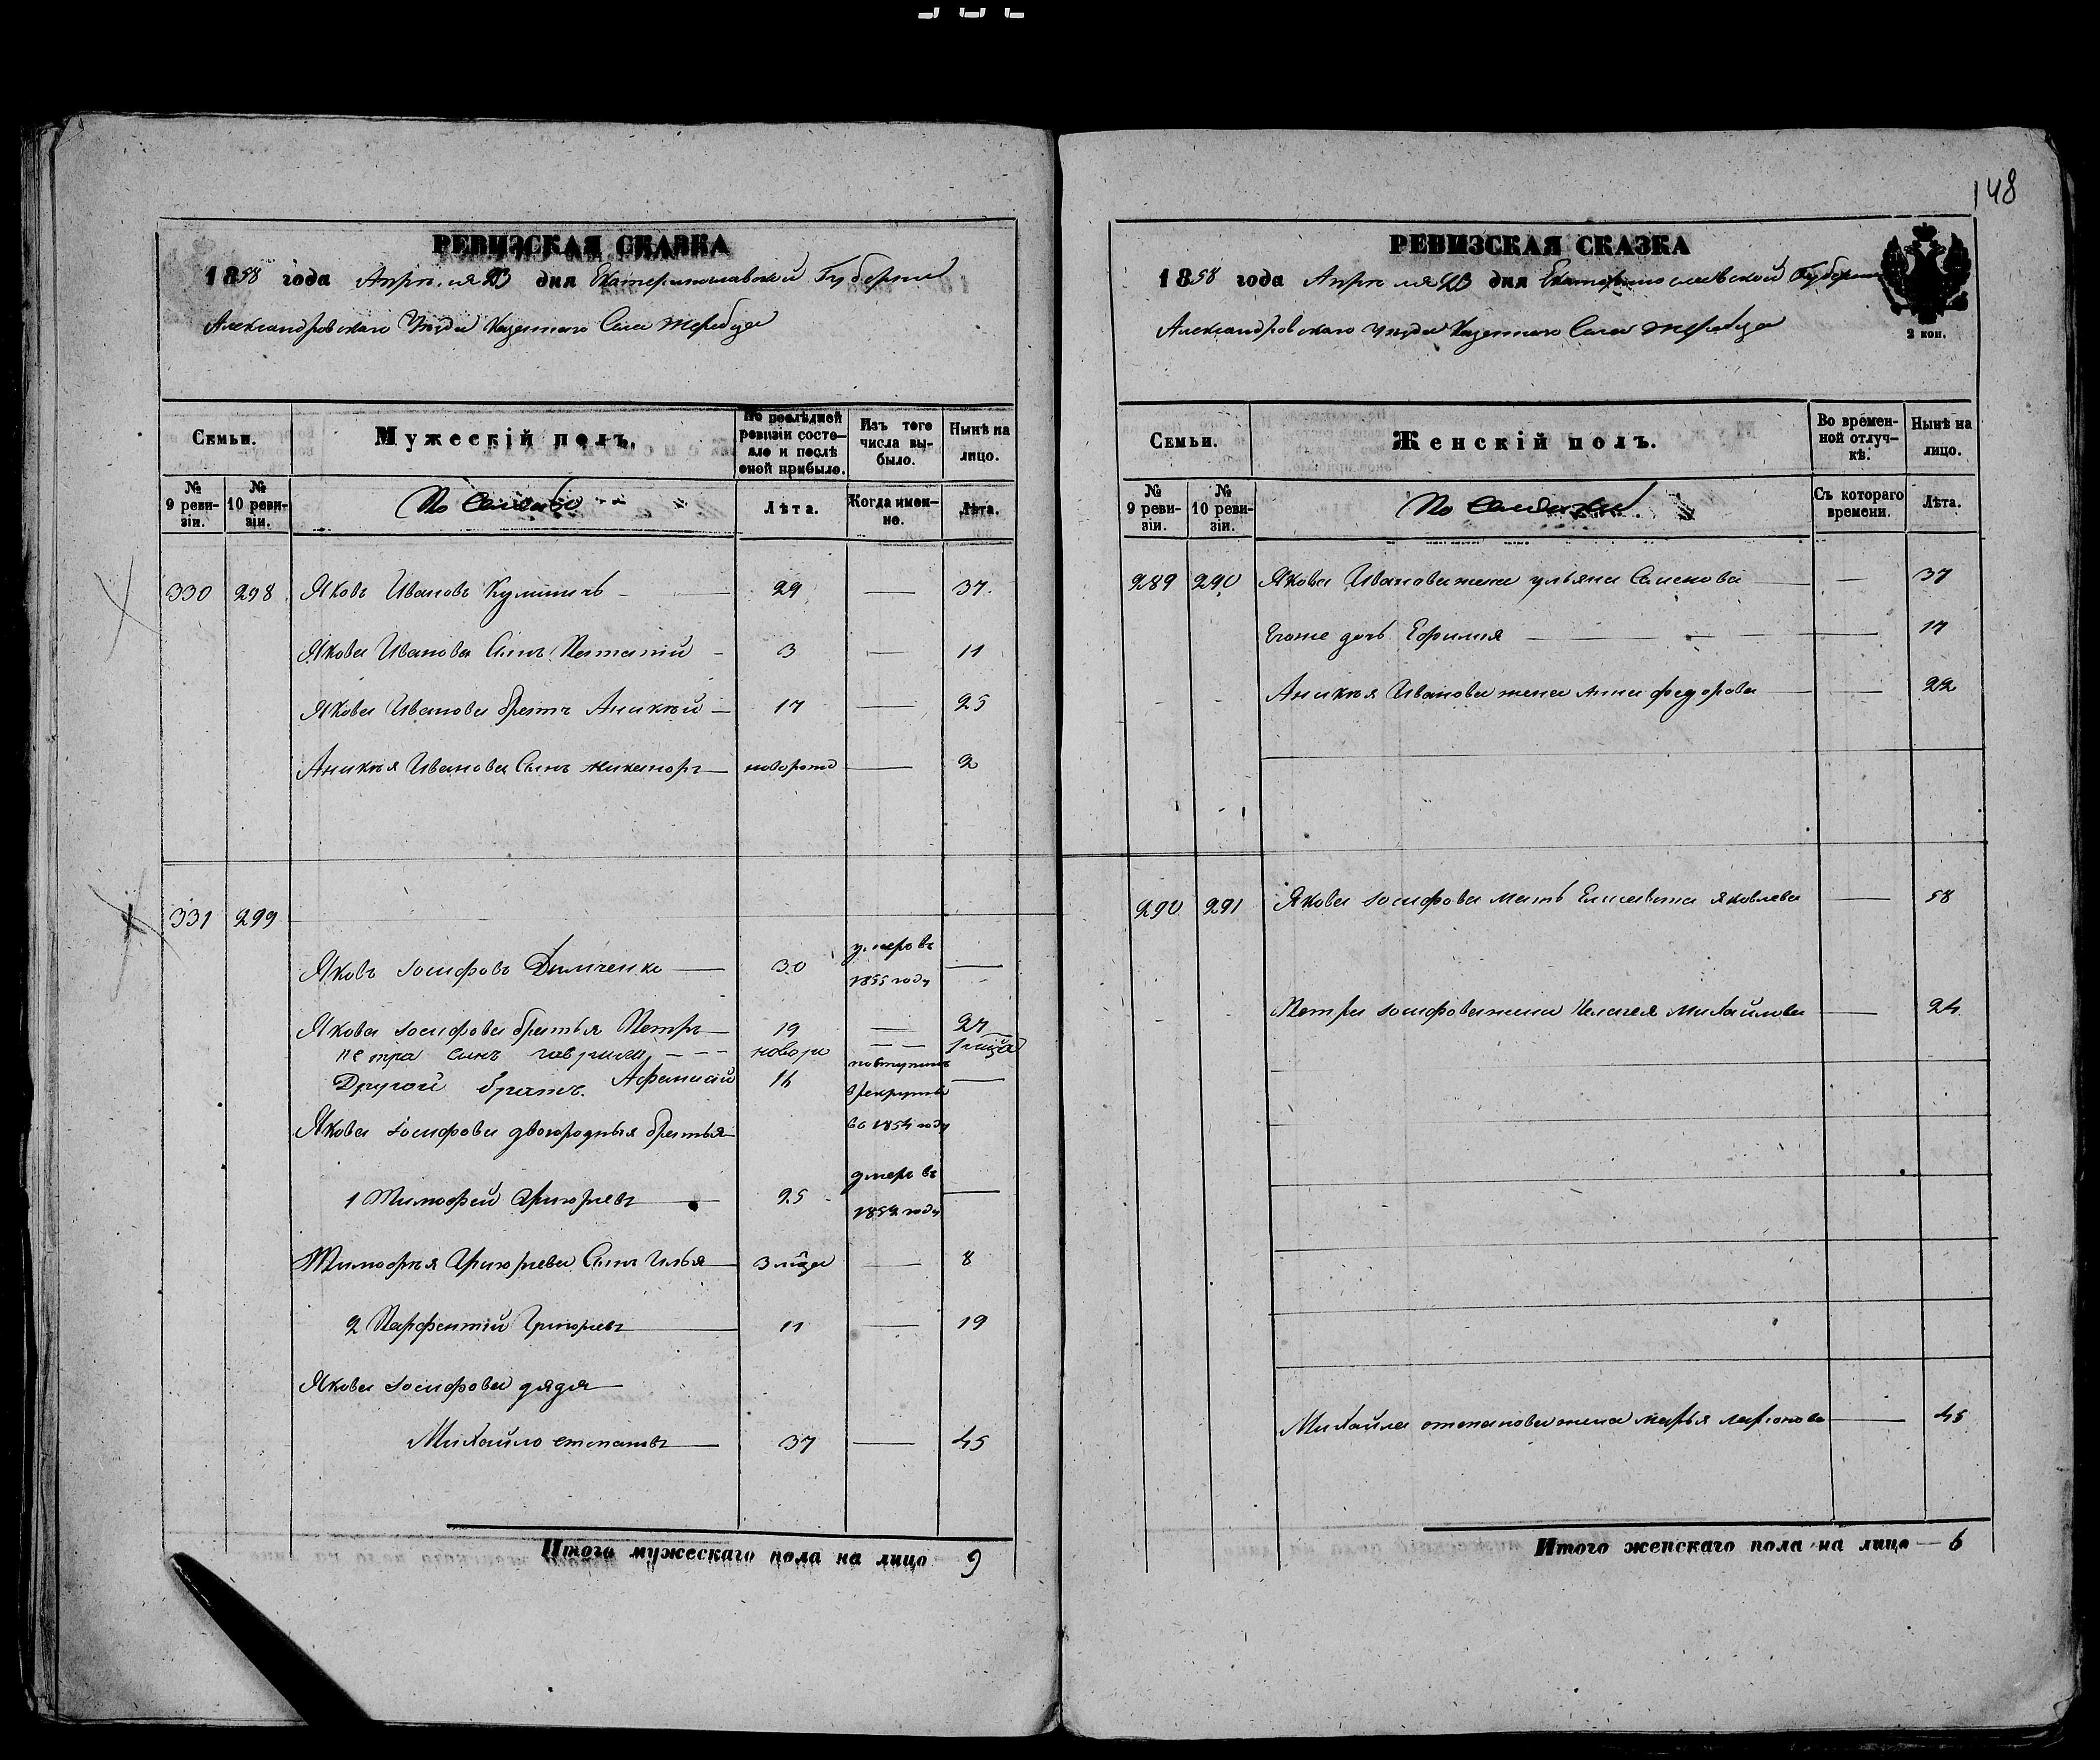 РЕВИЗСКАЯ СКАЗКА
1858 года Апреля 23 дня Екатеринославской Губернии
Александровскаго Уезда Казеннаго Села Жеребца
Семьи.
Мужескій полъ.
По послѣдней ревизіи состояло и послѣ оной прибыло.
Изъ того числа выбыло.
Нынѣ на лицо.
№ 9 ревизіи.
№ 10 ревизіи.
Лѣта.
Когда именно.
Лѣта.
330 298 Яковъ Ивановъ — 29 — 37.
Якова Иванова Сынъ — 3 — 11
Якова Иванова братъ Аникѣй — 17 — 25
Аникѣя Иванова Сынъ Никаноръ — новорожд — 2
331 299
Яковъ Іосифовъ Демченко — 30 умеръ въ 1855 году —
Якова Іосифова братья Петръ — 19 — 27
петра сынъ гаврило — — — новоро — — 1 мѣца
Другой братъ. Афанасій 16 поступилъ в рекруты во 1854 году —
Якова Іосифова двоюродныя братья
1 Тимофей Григорьевъ — 25 умеръ въ 1854 году —
Тимофѣя Григорьева Сынъ Илья — 3 мѣца — 8
2 Парфентій Григорьевъ — 11 — 19
Якова Іосифова дядя
Михайло степановъ — 37 — 45
Итого мужескаго пола на лицо 9
148
РЕВИЗСКАЯ СКАЗКА
1858 года Апреля 23 дня Екатеринославской Губернии
Александровскаго Уезда Казеннаго Села Жеребца
2 коп.
Семьи.
Женскій полъ.
Во временной отлучкѣ.
Нынѣ на лицо.
№ 9 ревизіи.
№ 10 ревизіи.
Съ котораго времени.
Лѣта.
289 290 Якова Иванова жена ульяна Семенова — — 37
Егоже дочь Ефимия — — 17
Аникѣя Иванова жена Анна федорова — — 22
290 291 Якова Іосифова мать Елисавета яковлева — 58
Петра Іосифова жена Пелагея Михайлова — 24
Михайла степанова жена марья ларіонова — 45
Итого женскаго пола на лицо — 6